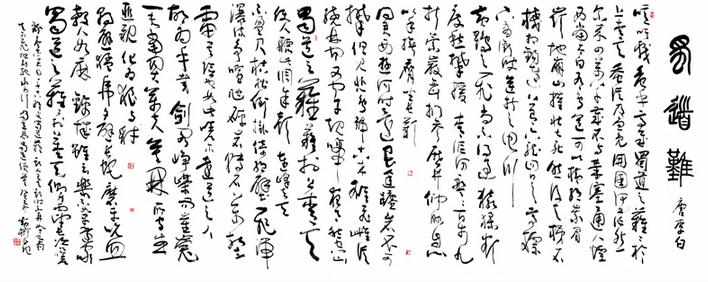 蜀道難
唐李白
噫吁戲危乎高哉蜀道之難難於
上青天蠶叢及魚鳧開國何茫然
尔来四萬八千歲不與秦塞通人煙
西當太白有鳥道可以橫絕峨眉
巔地崩山摧壯士死然後天梯石
棧相鉤連上有六龍回日之高標
下有衝波逆折之回川
黃鶴之飛尚不得過猿猱欲
度愁攀援青泥何盤盤百步九
折縈巖巒捫參歷井仰脅息
以手撫膺坐長歎
問君西遊何時還畏途巉巖不可
攀但見悲鳥號古木雄飛雌從
繞林間又聞子規啼夜月愁空山
蜀道之難難於上青天
使人聽此凋朱顏連峰去天
不盈尺枯松倒掛倚絕壁飛湍
瀑流爭喧豗砯崖轉石萬壑
雷其險也如此嗟爾遠道之人
胡為乎來哉劍閣崢嶸而崔嵬
一夫當關萬夫莫開所守
或匪親化為狼與豺
朝避猛虎夕避長蛇磨牙吮血
殺人如麻錦城雖云樂不如早還家
蜀道之難難於上青天側身西望長咨嗟